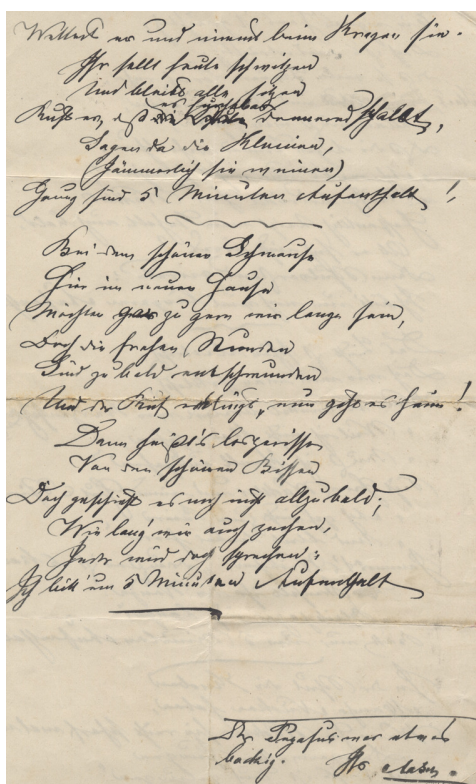 Wettert er und nimmt beim Kragen sie.
Ihr sollt heute schwitzen
Und bleibt alle sitzen
Ruft er, daß es donnernd schallt,
Sagen da die Kleinen,
(Jämmerlich sie weinen)
Genug sind 5 Minuten Aufenthalt!
Bei dem schönen Schmause
Hier im neuen Hause
Möchten gar zu gern wir lange sein,
Doch die frohen Stunden
Sind zu bald entschwunden
Und der Ruf erklingt, nun geht es heim!
Dann heißt's losgerissen
Von den schönen Bissen
Doch geschieht es noch nicht allzubald;
Wie lang' wir auch zechen,
Jeder wird doch sprechen:
Ich bitt' um 5 Minuten Aufenthalt
Der Pegasus war etwas
bockig.